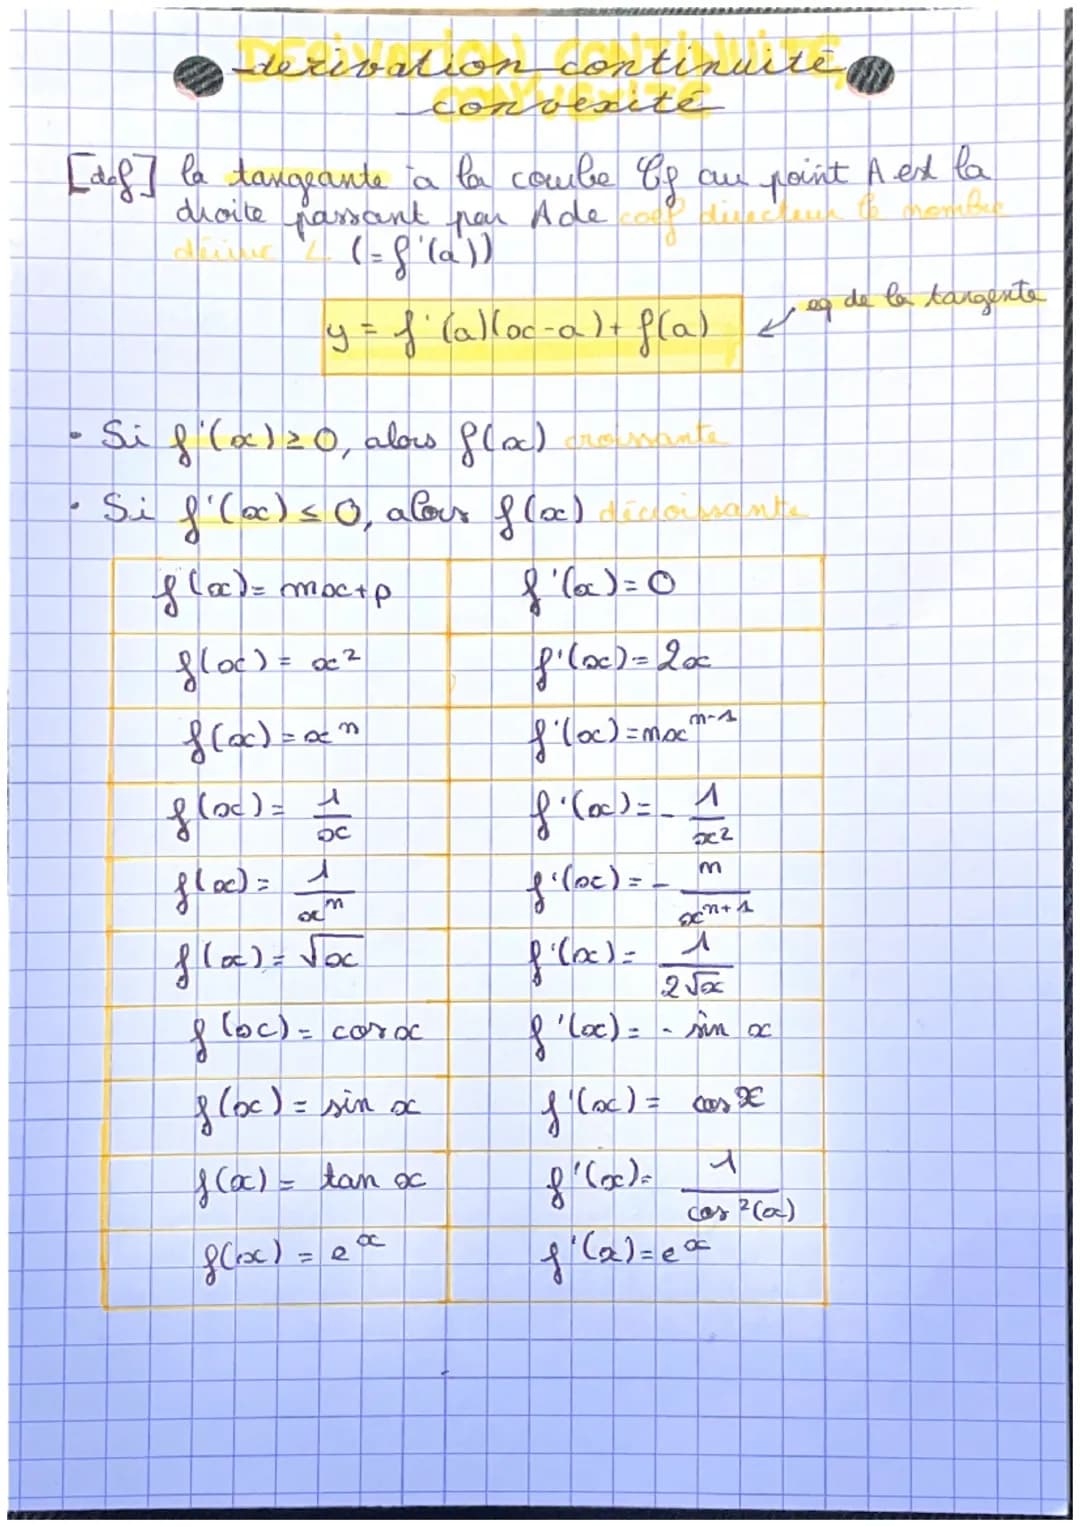 DERIVATION, CONTINUITÉ,
CONVEXITÉ
derivation continuité
convexité
[def] la tangeante à la courbe Cf au point A est la
droite passant par A de coef directeur le nombre
dérivé L (= f'(a))
y = f'(a)(x-a) + f(a)
eq de la tangente
• Si f'(x) ≥ 0, alors f(x) croissante
• Si f'(x) ≤ 0, alors f(x) décroissante
f(x) = mx+p f'(x) = 0
f(x) = x² f'(x) = 2x
f(x) = xⁿ f'(x) = nxⁿ⁻¹
f(x) = 1/x f'(x) = - 1/x²
f(x) = 1/xⁿ f'(x) = - n/xⁿ⁺¹
f(x) = √x f'(x) = 1/2√x
f(x) = cos x f'(x) = - sin x
f(x) = sin x f'(x) = cos x
f(x) = tan x f'(x) = 1/cos²(x)
f(x) = eˣ f'(x) = eˣ